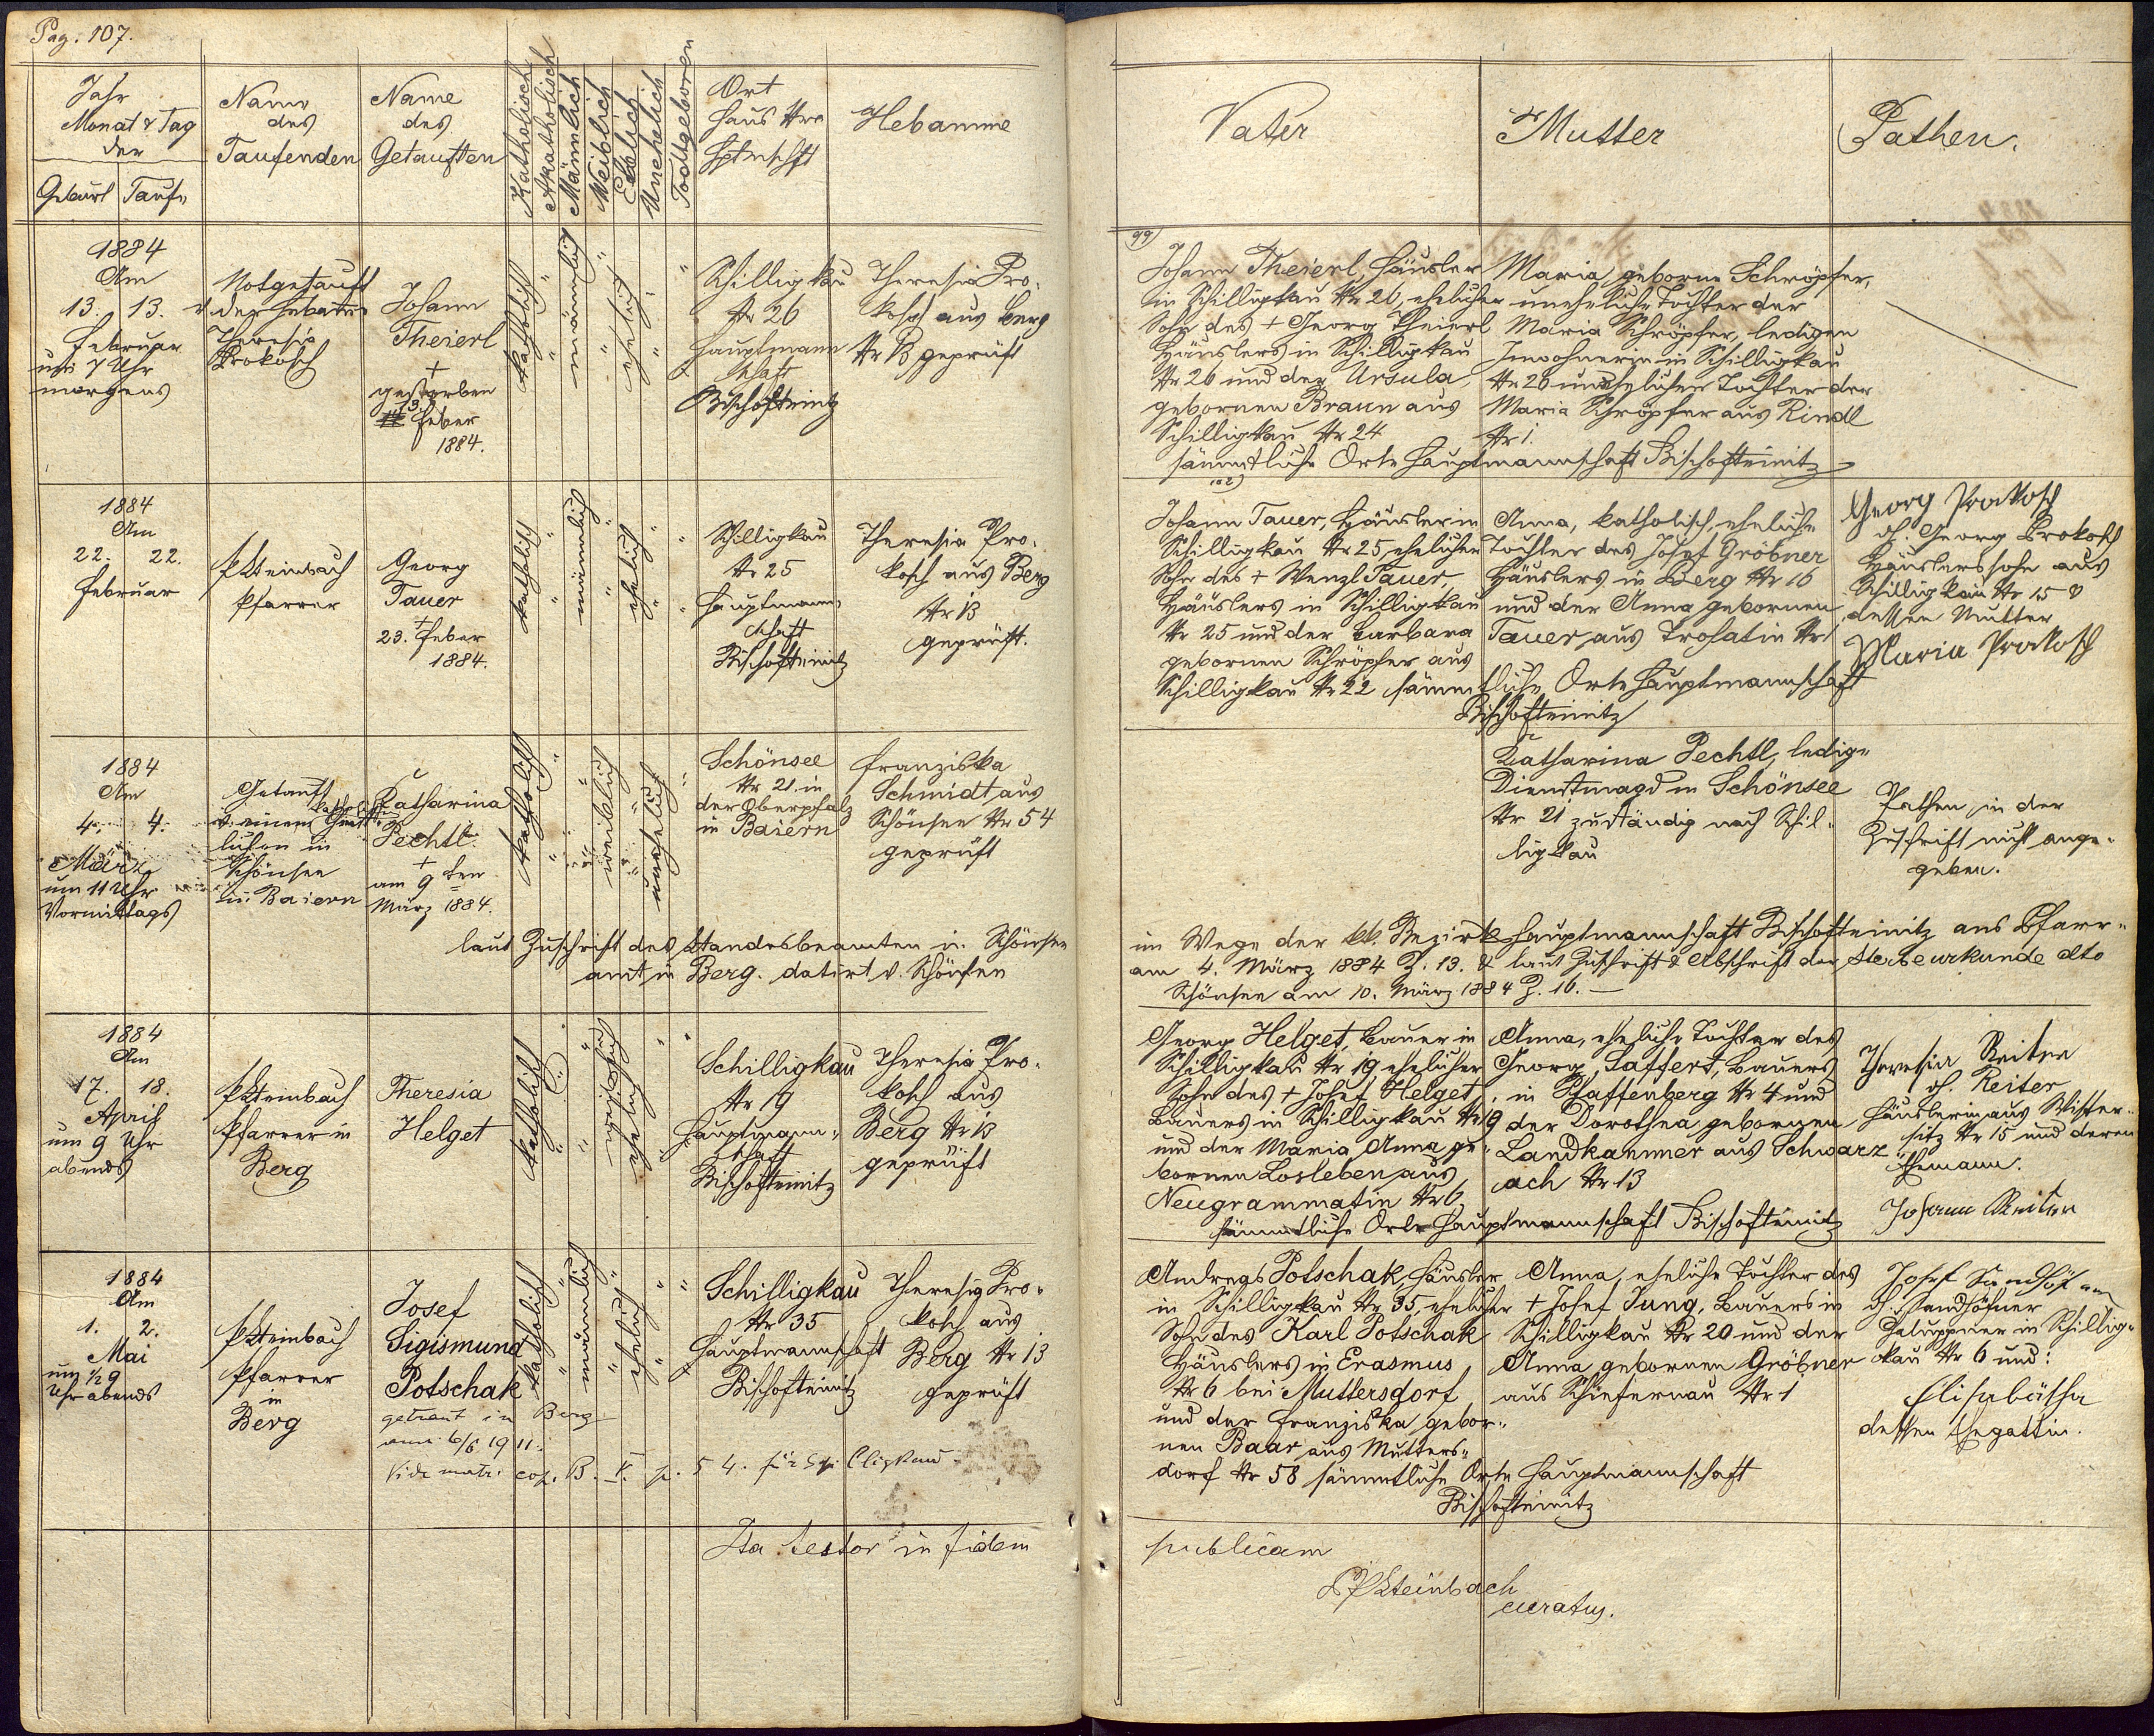 Pag. 107.
Jahr
Monat & Tag
der
Geburt Taufe
Name
des
Taufenden
Name
des
Getauften
Katholisch
Akatholisch
Männlich
Weiblich
Ehelich
Unehelich
Todtgeboren
Ort
Haus Nro
Hptmschft
Hebamme
Vater
Mutter
Pathen.
1884
Am
13. 13.
Februar
um 7 Uhr
morgens
Notgetauft
v. der Hebamme
Theresia
Prokosch
Johann
Theierl
+
gestorben
13.
Feber
1884.
katholisch
männlich
ehelich
Schilligkau
Nr 26
Hauptmann
schaft
Bischofteinitz
Theresia Pro-
kosch aus Berg
Nr 13 geprüft
99)
Johann Theierl, Häusler
in Schilligkau Nr 26, ehelicher
Sohn des + Georg Theierl
Häuslers in Schilligkau
Nr 26 und der Ursula,
gebornen Braun aus
Schilligkau Nr 24
Maria geborne Schröpfer,
uneheliche Tochter der
Maria Schröpfer, ledigen
Inwohnerin in Schilligkau
Nr 26 unehelichen Tochter der
Maria Schröpfer aus Rindl
Nr 1.
sämmtliche Orte Hauptmannschaft Bischofteinitz
1884
Am
22. 22.
Februar
P Steinbach
Pfarrer
Georg
Tauer
+
23. Feber
1884.
katholisch
männlich
ehelich
Schilligkau
Nr 25
Hauptmann-
schaft
Bischofteinitz
Theresia Pro-
kosch aus Berg
Nr 13
geprüft.
102)
Johann Tauer, Häusler in
Schilligkau Nr 25, ehelicher
Sohn des + Wenzl Tauer
Häuslers in Schilligkau
Nr 25 und der Barbara
gebornen Schröpfer aus
Schilligkau Nr 22 sämmtliche Orte Hauptmannschaft
Bischofteinitz
Anna, katholisch, eheliche
Tochter des Josef Gröbner
Häuslers in Berg Nr 16
und der Anna gebornen
Tauer, aus Trohatin Nr 1
Georg Prokosch
Georg Prokosch
Häuslerssohn aus
Schilligkau Nr 15 &
dessen Mutter
Maria Prokosch
1884
Am
4. 4.
März
um 11 Uhr
Vormittags
Getauft
v. einem kathol. Geist-
lichen in
Schönsee
in Baiern
Katharina
Pechtl.
+
am 9 ten
März 1884.
katholisch
weiblich
unehelich
Schönsee
Nr 21. in
der Oberpfalz
in Baiern
Franziska
Schmidt, aus
Schönsee Nr 54
geprüft
Katharina Pechtl, ledige
Dienstmagd in Schönsee
Nr 21 zuständig nach Schil-
ligkau
Pathen in der
Zuschrift nicht ange-
geben.
laut Zuschrift des Standesbeamten in Schönsee im Wege der kk. Bezirkshauptmannschaft Bischofteinitz ans Pfarr-
amt in Berg. datirt v. Schönsee am 4. März 1884 Z. 13. & laut Zuschrift & Abschrift der Sterbeurkunde dto
Schönsee am 10. März 1884 Z. 16.
1884
Am
17. 18.
April
um 9 Uhr
abends
P Steinbach
Pfarrer in
Berg
Theresia
Helget
katholisch
weiblich
ehelich
Schilligkau
Nr 19
Hauptmann-
schaft
Bischofteinitz
Theresia Pro-
kosch aus
Berg Nr 13
geprüft
Georg Helget, Bauer in
Schilligkau Nr 19, ehelicher
Sohn des + Josef Helget,
Bauers in Schilligkau Nr 19
und der Maria Anna ge-
bornen Losleben aus
Neugrammatin Nr 6
Anna, eheliche Tochter des
Georg Saffert, Bauers
in Pfaffenberg Nr 4 und
der Dorothea gebornen
Landkammer aus Schwarz
ach Nr 13
sämmtliche Orte Hauptmannschaft Bischofteinitz
Theresia Reiter
Reiter
Häuslerin aus Wister-
sitz Nr 15 und deren
Ehemann.
Johann Reiter
1884
Am
1. 2.
Mai
um 1/2 9
Uhr abends
P Steinbach
Pfarrer
in
Berg
Josef
Sigismund
Potschak
getraut in Berg
am 6/6 1911.
Vide matr. cop. B. V. p. 54. für Schilligkau
katholisch
männlich
ehelich
Schilligkau
Nr 35
Hauptmannschaft
Bischofteinitz
Theresia Pro-
kosch aus
Berg Nr 13
geprüft
Andreas Potschak, Häusler
in Schilligkau Nr 35, ehelicher
Sohn des Karl Potschak
Häuslers in Erasmus
Nr 6 bei Muttersdorf
und der Franziska gebor-
nen Baar aus Mutters-
dorf Nr 58 sämmtliche Orte Hauptmannschaft
Bischofteinitz
Anna, eheliche Tochter des
+ Josef Jung, Bauers in
Schilligkau Nr 20 und der
Anna gebornen Gröbner
aus Schiefernau Nr 1
Josef
Sandhöfner
Chaluppner in Schillig-
kau Nr 6 und:
Elisabetha
dessen Ehegattin.
Ita testor in fidem publicam
P Steinbach
curatus.